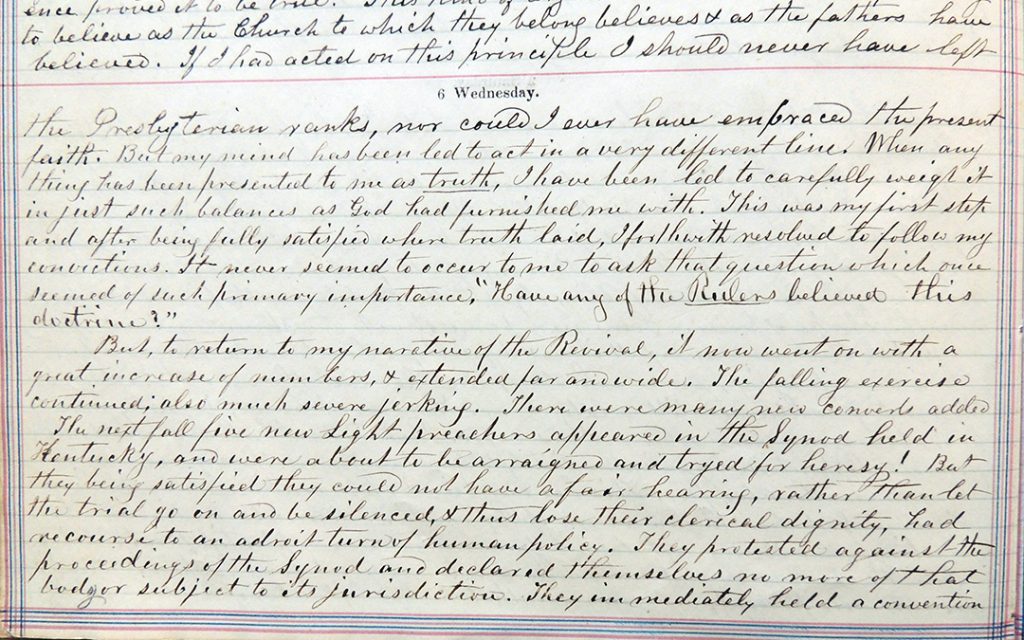 ence proved it to be true. This kind of
to believe as the Church to which they belong believes & as the fathers have
believed. If I had acted on this principle I should never have left
6 Wednesday.
the Presbyterian ranks, nor could I ever have embraced the present
faith. But my mind has been led to act in a very different line. When any
thing has been presented to me as truth, I have been led to carefully weigh it
in just such balances as God had furnished me with. This was my first step
and after being fully satisfied where truth laid, I forthwith resolved to follow my
convictions. It never seemed to occur to me to ask that question which once
seemed of such primary importance, "Have any of the Rulers believed this
doctrine?"
But, to return to my narrative of the Revival, it now went on with a
great increase of numbers, & extended far and wide. The falling exercise
continued; also much severe jerking. There were many new converts added
The next fall five new Light preachers appeared in the Synod held in
Kentucky, and were about to be arraigned and tryed for heresy! But
they being satisfied they could not have a fair hearing, rather than let
the trial go on and be silenced, & thus lose their clerical dignity, had
recourse to an adroit turn of human policy. They protested against the
proceedings of the Synod and declared themselves no more of that
body or subject to its jurisdiction. They immediately held a convention